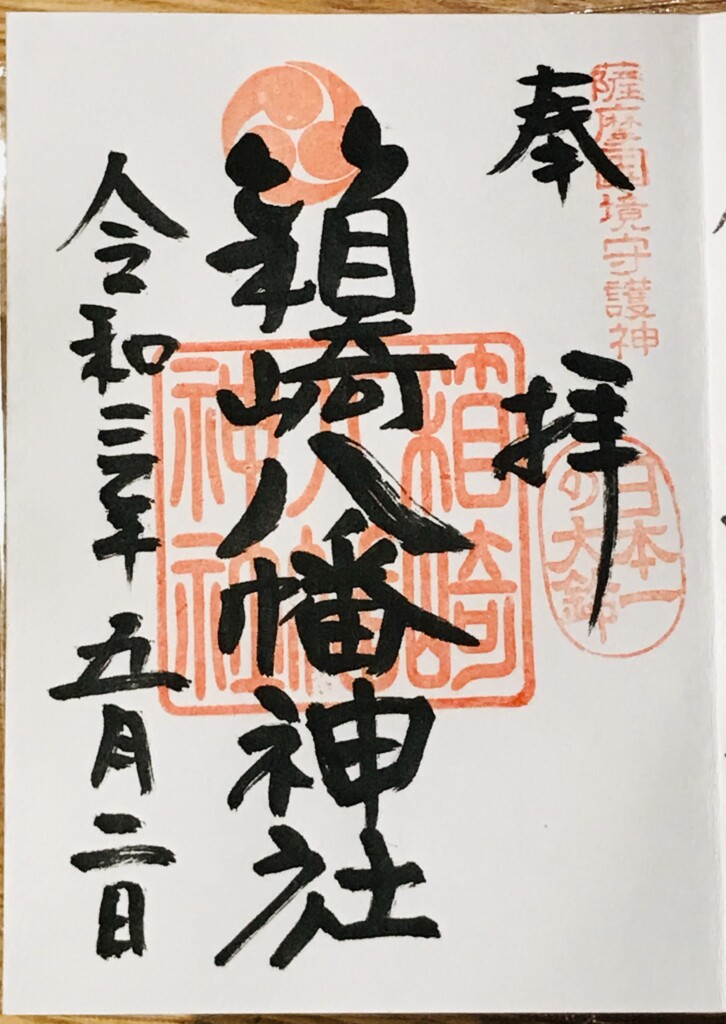 薩摩国境守護神
奉拝
日本一
の大鈴
箱崎八幡神社
箱崎
八幡
神社
令和三年五月二日